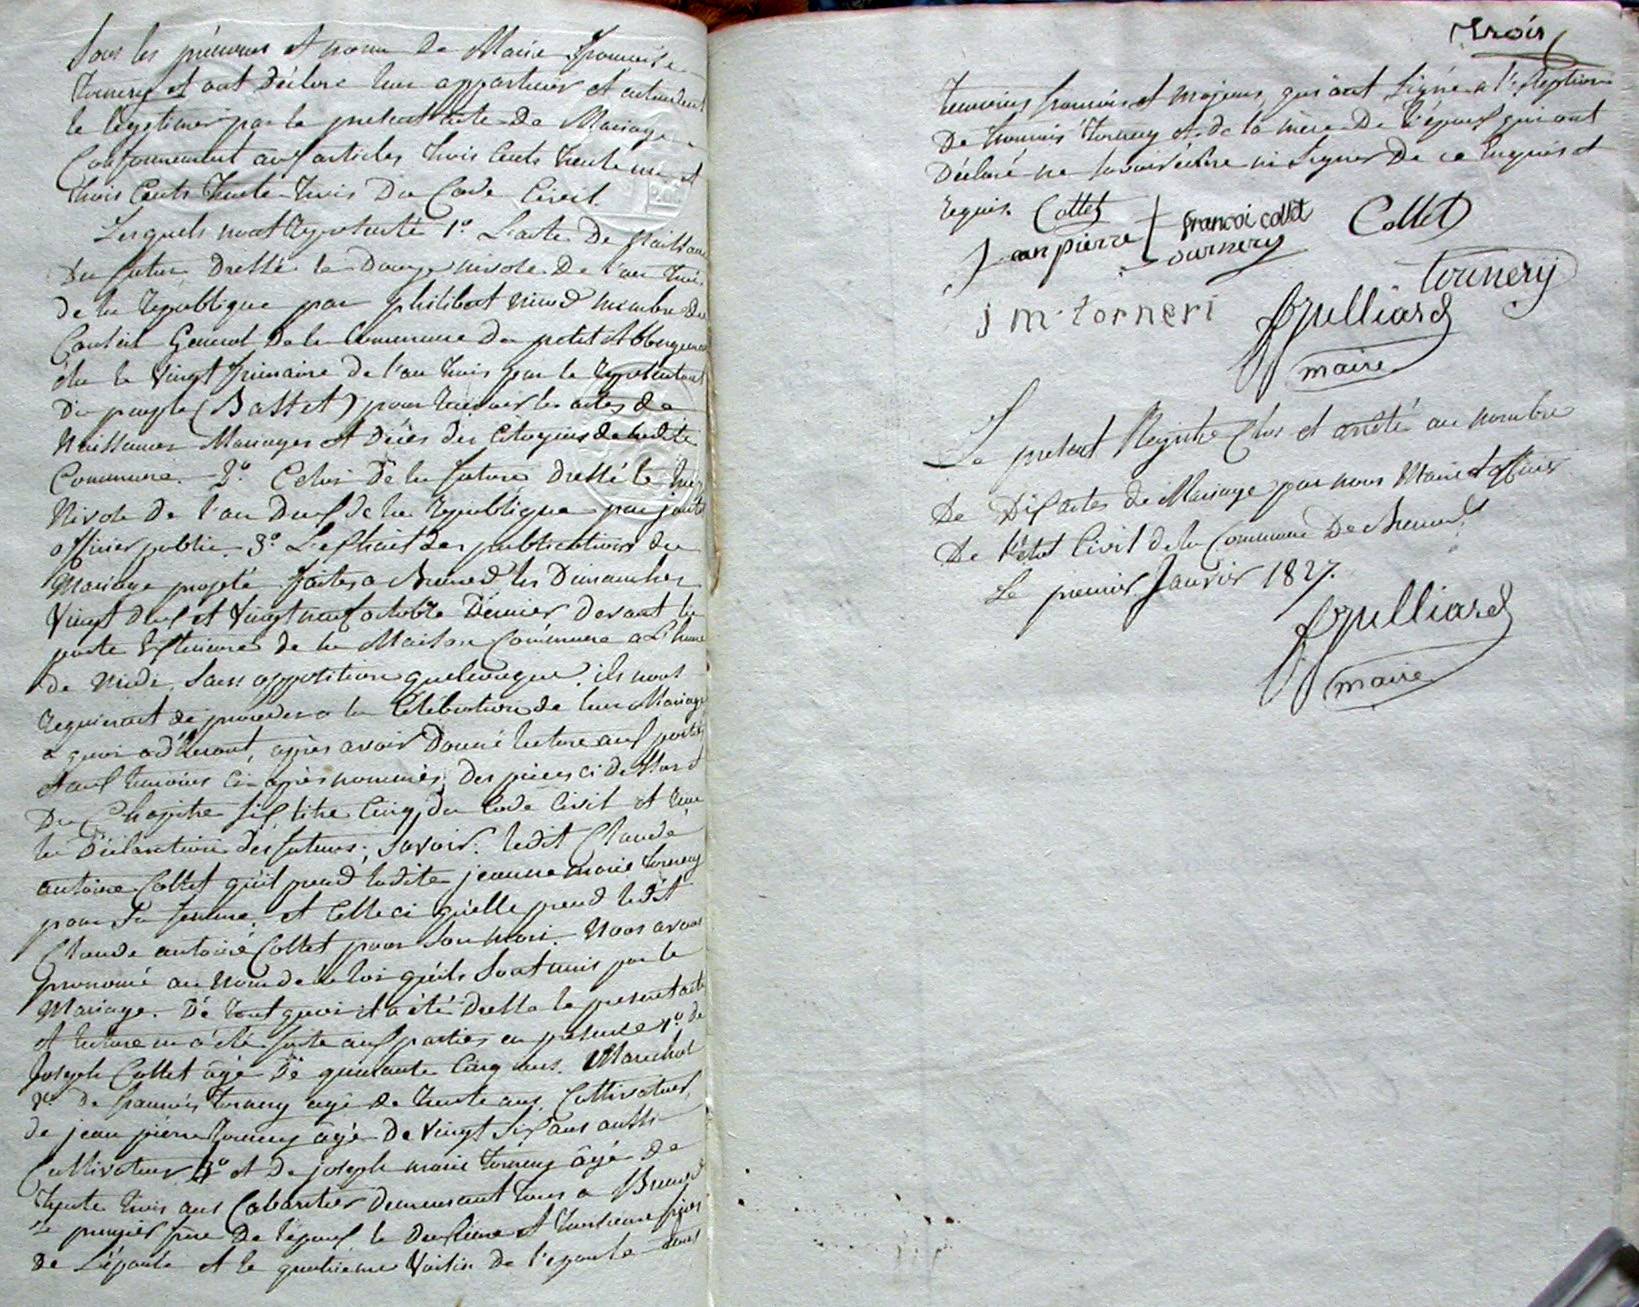 Sous les prénoms et noms de Marie Françoise
Tornery et ont déclaré leur appartenir et entendent
le legitimer par le present acte de Mariage
Conformement aux articles trois Cents trente un et
trois Cents trente trois Du Code Civil.
Lesquels nous ont représenté 1º L'acte De Naissance
Du futur Dressé le Douze nivose De l'an trois
de la République par philibert membre du
Conseil General De la Commune Du petit abbergement
élu le Vingt frimaire de l'an trois par le représentant
Du peuple (Bassel) pour recevoir les actes de
Naissances Mariages et Décès des Citoyens de ladite
Commune. 2º. Celui De la future Dressé le
Nivose De l'an Deux de la République par
officier public. 3º L'extrait des publications du
Mariage projeté faites a Brenod les Dimanches
Vingt deux et Vingt neuf octobre Dernier devant la
porte extérieure de la Maison Commune a L'heure
de Midi, Sans opposition quelconque. ils nous
requierent de proceder a la Célébration de leur Mariage
a quoi adhérant, après avoir Donné lecture aux parties
et aux temoins ci après nommés, Des pièces ci Dessus et
Du Chapitre Six titre Cinq du Code Civil et reçu
la Déclaration des futurs, Savoir. ledit Claude
antoine Collet qu'il prend ladite jeanne marie tornery
pour Sa femme, et Celle ci qu'elle prend ledit
Claude antoine Collet pour Son mari. Nous avons
prononcé au Nom de la loi qu'ils Sont unis par le
Mariage. De tout quoi il a été Dressé le present acte
et lecture en a été faite aux parties en présence 1º. de
Joseph Collet agé De quarante Cinq ans. Marechal
2º. de françois tornery agé de trente ans, Cultivateur,
de jean pierre tornery agé De Vingt Six ans aussi
Cultivateur 4º et De joseph marie tornery agé de
trente trois ans Cabaretier demeurant tous a Brenod
le premier frère De l'époux le Deuxieme et troisieme frères
De L'épouse et le quatrieme Voisin de l'épouse tous
Trois
temoins français et majeurs, qui ont Signé a l'exception
De tornery et de la mère De l'époux qui ont
Déclaré ne savoir écrire ni Signer De ce Enquis et
requis. Collet françoi collet Collet
Jean pierre tournery
tournery
j m. torneri Jullliard
maire
Le present Registre Clos et arrêté au nombre
De Dix actes de Mariage par nous Maire et officier
De l'état Civil de la Commune De Brenod,
Le premier Janvier 1827.
Julliard
maire